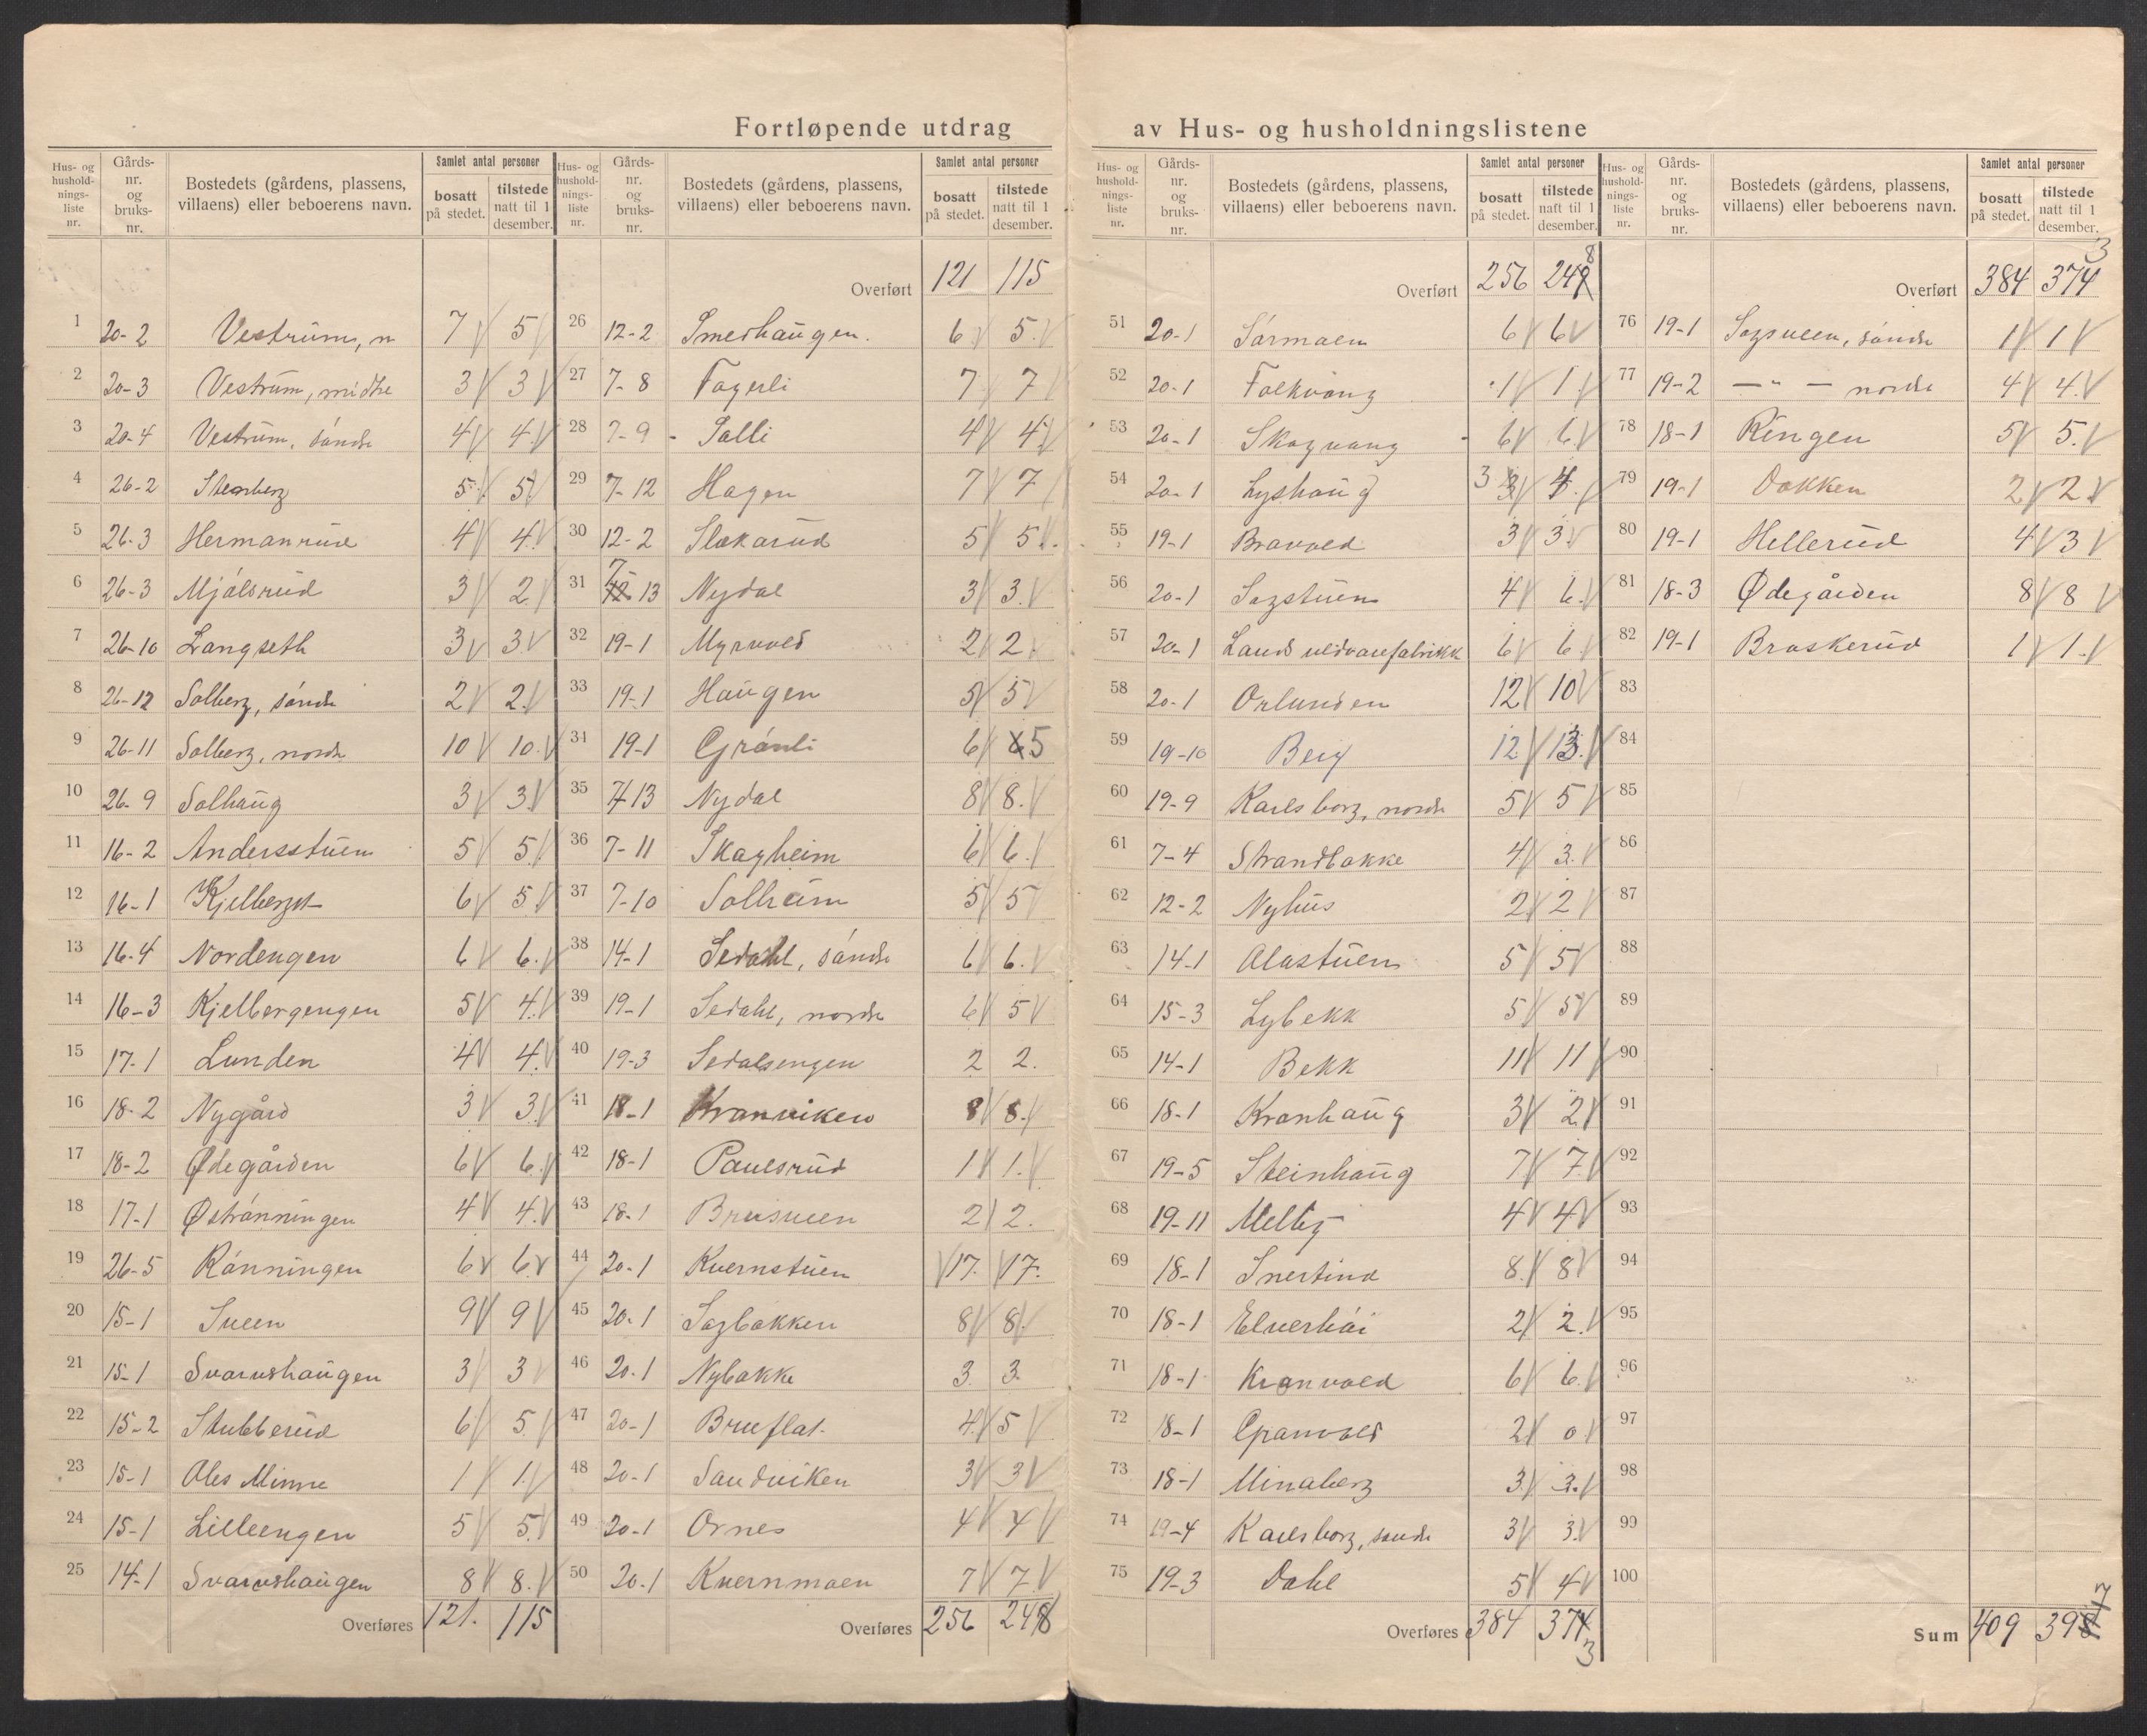 Fortløpende utdrag av Hus- og husholdningslistene
Hus- og husholdnings-liste nr. Gårds-nr. og bruks-nr. Bostedets (gårdens, plassens, villaens) eller beboerens navn. Samlet antal personer bosatt på stedet. tilstede natt til 1 desember.
1 20-2 Vestrum, n 7 5
2 20-3 Vestrum, midtre 3 3
3 20-4 Vestrum, søndre 4 4
4 26-2 Stenberg 5 5
5 26-3 Hermanrud 4 4
6 26-3 Mjølsrud 3 2
7 26-10 Langseth 3 3
8 26-12 Solberg, søndre 2 2
9 26-11 Solberg, nordre 10 10
10 26-9 Solhaug 3 3
11 16-2 Andersstuen 5 5
12 16-1 Kjelberget 6 5
13 16-4 Nordengen 6 6
14 16-3 Kjelbergengen 5 4
15 17-1 Lunden 4 4
16 18-2 Nygård 3 3
17 18-2 Ødegården 6 6
18 17-1 Østrønningen 4 4
19 26-5 Rønningen 6 6
20 15-1 Sveen 9 9
21 15-1 Svarvshaugen 3 3
22 15-2 Stubberud 6 5
23 15-1 Ales Minne 1 1
24 15-1 Lilleengen 5 5
25 14-1 Svarvshaugen 8 8
Overføres 121. 115
Hus- og husholdnings-liste nr. Gårds-nr. og bruks-nr. Bostedets (gårdens, plassens, villaens) eller beboerens navn. Samlet antal personer bosatt på stedet. tilstede natt til 1 desember.
Overført 121 115
26 12-2 Smedhaugen. 6 5
27 7-8 Fagerli 7 7
28 7-9 Solli 4 4
29 7-12 Hagen 7 7
30 12-2 Slakarud 5 5
31 7-13 Nydal 3 3
32 19-1 Myrvold 2 2
33 19-1 Haugen 5 5
34 19-1 Grønli 6 5
35 7-13 Nydal 8 8
36 7-11 Skogheim 6 6
37 7-10 Solheim 5 5
38 14-1 Sedahl, søndre 6 6
39 19-1 Sedahl, nordre 6 5
40 19-3 Sedalsengen 2 2.
41 18-1 Kranviken 8 8
42 18-1 Paulsrud 1 1
43 18-1 Brusveen 2 2.
44 20-1 Kvernstuen 17 17
45 20-1 Sagbakken 8 8
46 20-1 Nybakke 3 3
47 20-1 Brueflat. 4 5
48 20-1 Sandviken 3 3
49 20-1 Ornes 4 4
50 20-1 Kvernmoen 7 7
Overføres 256 248
Hus- og husholdnings-liste nr. Gårds-nr. og bruks-nr. Bostedets (gårdens, plassens, villaens) eller beboerens navn. Samlet antal personer bosatt på stedet. tilstede natt til 1 desember.
Overført 256 248
51 20-1 Sørmoen 6 6
52 20-1 Folkvang 1 1
53 20-1 Skogvang 6 6
54 20-1 Lyshaug 3 4
55 19-1 Bravold 3 3
56 20-1 Sagstuen 4 6
57 20-1 Lands uldvarefabrikk 6 6
58 20-1 Orlunden 12 10
59 19-10 Berg 12 13
60 19-9 Karlsborg, nordre 5 5
61 7-4 Strandbakke 4 3
62 12-2 Nyhus 2 2
63 14-1 Olastuen 5 5
64 15-3 Lybekk 5 5
65 14-1 Bekk 11 11
66 18-1 Kranhaug 3 2
67 19-5 Steinhaug 7 7
68 19-11 Melby 4 4
69 18-1 Snertind 8 8
70 18-1 Elverhøi 2 2
71 18-1 Kranvold 6 6
72 18-1 Granvold 2 0
73 18-1 Minaberg 3 3
74 19-4 Karlsborg, søndre 3 3
75 19-3 Dahl 5 4
Overføres 384 373
Hus- og husholdnings-liste nr. Gårds-nr. og bruks-nr. Bostedets (gårdens, plassens, villaens) eller beboerens navn. Samlet antal personer bosatt på stedet. tilstede natt til 1 desember.
Overført 384 373
76 19-1 Sagsveen, søndre 1 1
77 19-2 —"— nordre 4 4
78 18-1 Ringen 5 5
79 19-1 Dokken 2 2
80 19-1 Hellerud 4 3
81 18-3 Ødegården 8 8
82 19-1 Braskerud 1 1
83
84
85
86
87
88
89
90
91
92
93
94
95
96
97
98
99
100
Sum 409 397